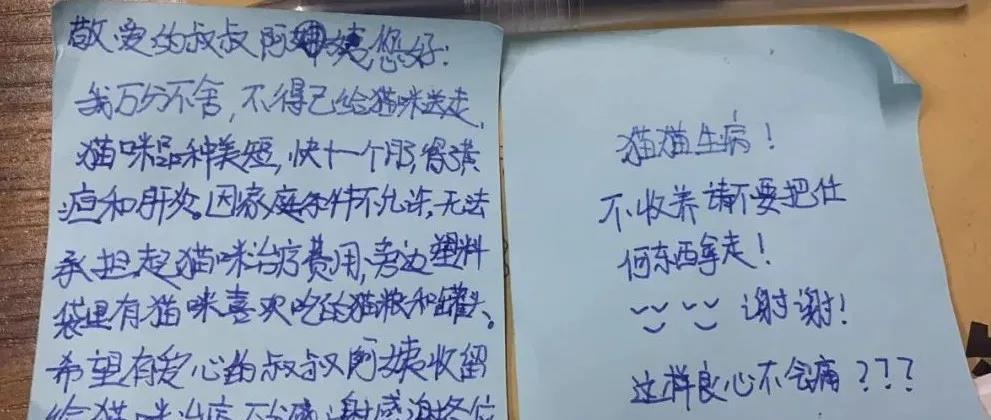 敬爱的叔叔阿姨您好:
我万分不舍,不得已给猫咪送走,
猫咪品种美短,快十个月,得黄
疸和肝炎。因家庭条件不允许,无法
承担起猫咪治疗费用,旁边塑料
袋里有猫咪喜欢吃的猫粮和罐头。
希望有爱心的叔叔阿姨收留
给猫咪治病
猫猫生病!
不收养请不要把任
何东西拿走!
谢谢!
这样良心不会痛???